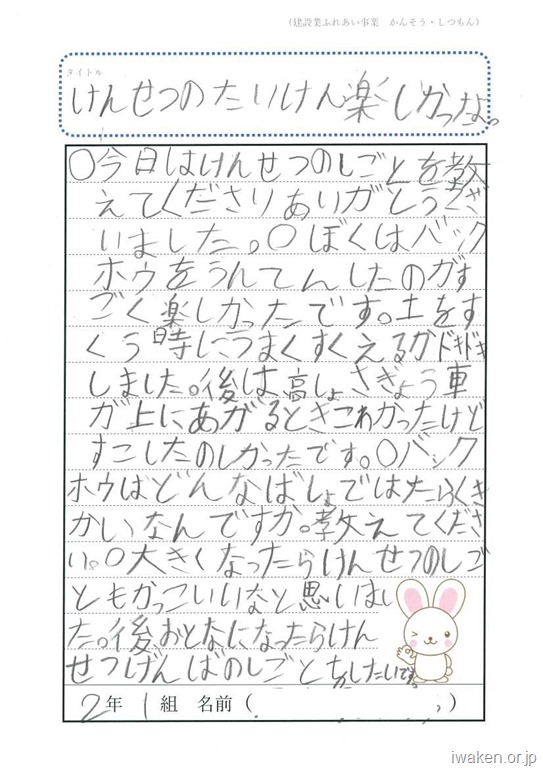 (建設業ふれあい事業　かんそう・しつもん)
タイトル
けんせつのたいけん楽しかったよ。
○今日はけんせつのしごとを教
えてくださりありがとうござ
いました。○ぼくはバック
ホウをうんてんしたのがす
ごく楽しかったです。土をす
くう時にうまくすくえるかドキドキ
しました。後は高しょさぎょう車
が上にあがるときこわかったけど
すこしたのしかったです。○バック
ホウはどんなばしょではたらくき
かいなんですか。教えてくださ
い。○大きくなったらけんせつのしご
ともかっこいいなと思いまし
た。後おとなになったらけん
せつげんばのしごと したいです。
2年 1組 名前( )
iwaken.or.jp